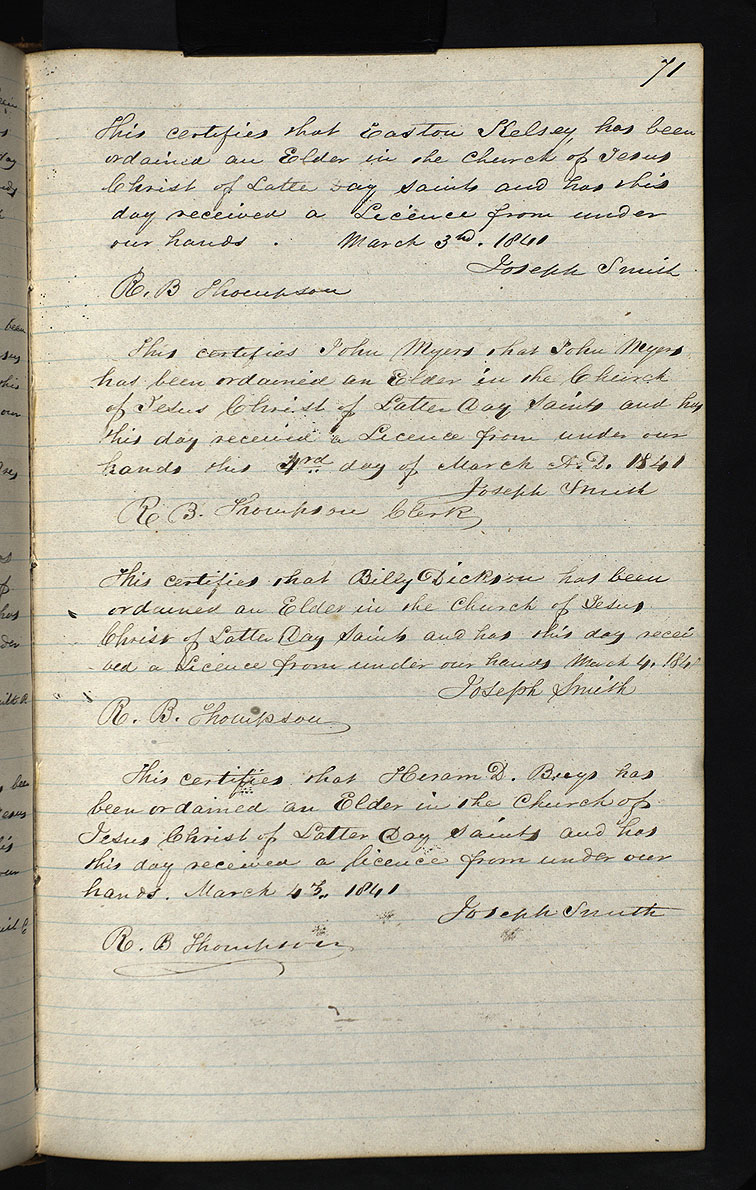 71
This certifies that Easton Kelsey, has been
ordained an Elder in the Church of Jesus
Christ of Latter Day Saints and has this
day received a Licence from under
our hands. March 3rd. 1841
Joseph Smith
R. B Thompson
This certifies John Myers that John Myers
has been ordained an Elder in the Church
of Jesus Christ of Latter Day Saints and has
this day received a Licence from under our
hands this 4rd day of March A.D. 1841
Joseph Smith
R. B. Thompson Clerk
This certifies that Billy Dickson has been
ordained an Elder in the Church of Jesus
Christ of Latter Day Saints and has this day recei
ved a Licence from under our hands March 4. 1841
Joseph Smith
R. B. Thompson
This certifies that Hiram D. Buys has
been ordained an Elder in the Church of
Jesus Christ of Latter Day Saints and has
this day received a licence from under our
hands. March 4th. 1841
Joseph Smith
R. B Thompson